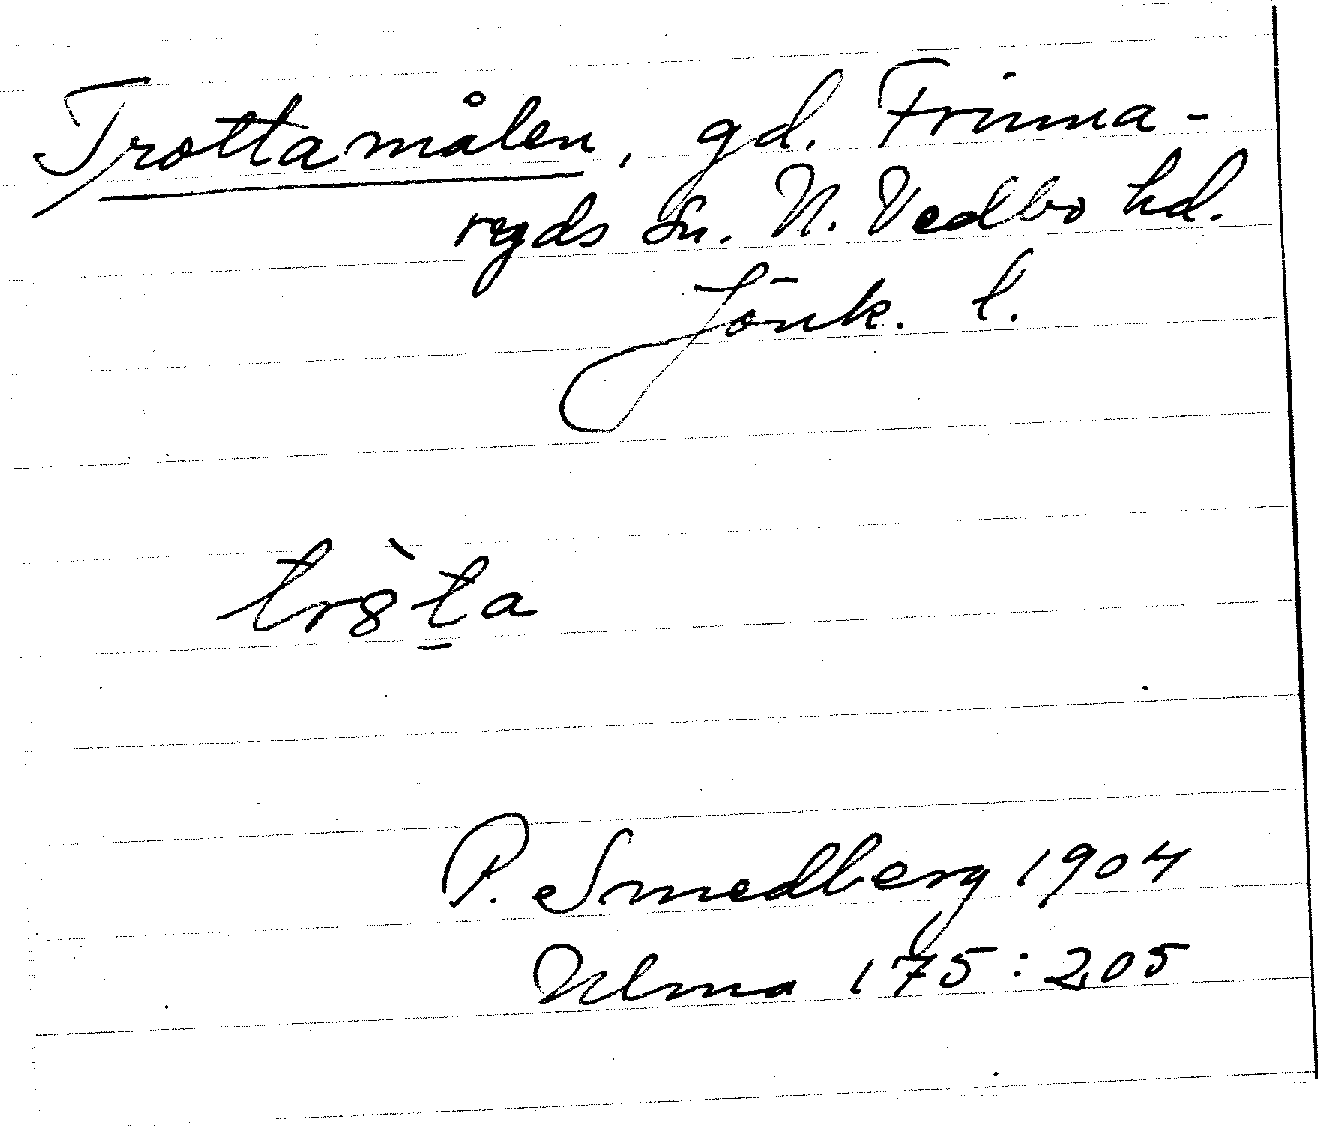 Trottamålen, gd. Frinna-
ryds sn. N. Vedbo hd.
Jönk. l.
tr8̀t̲a
P. Smedberg 1904
Ulma 175:205